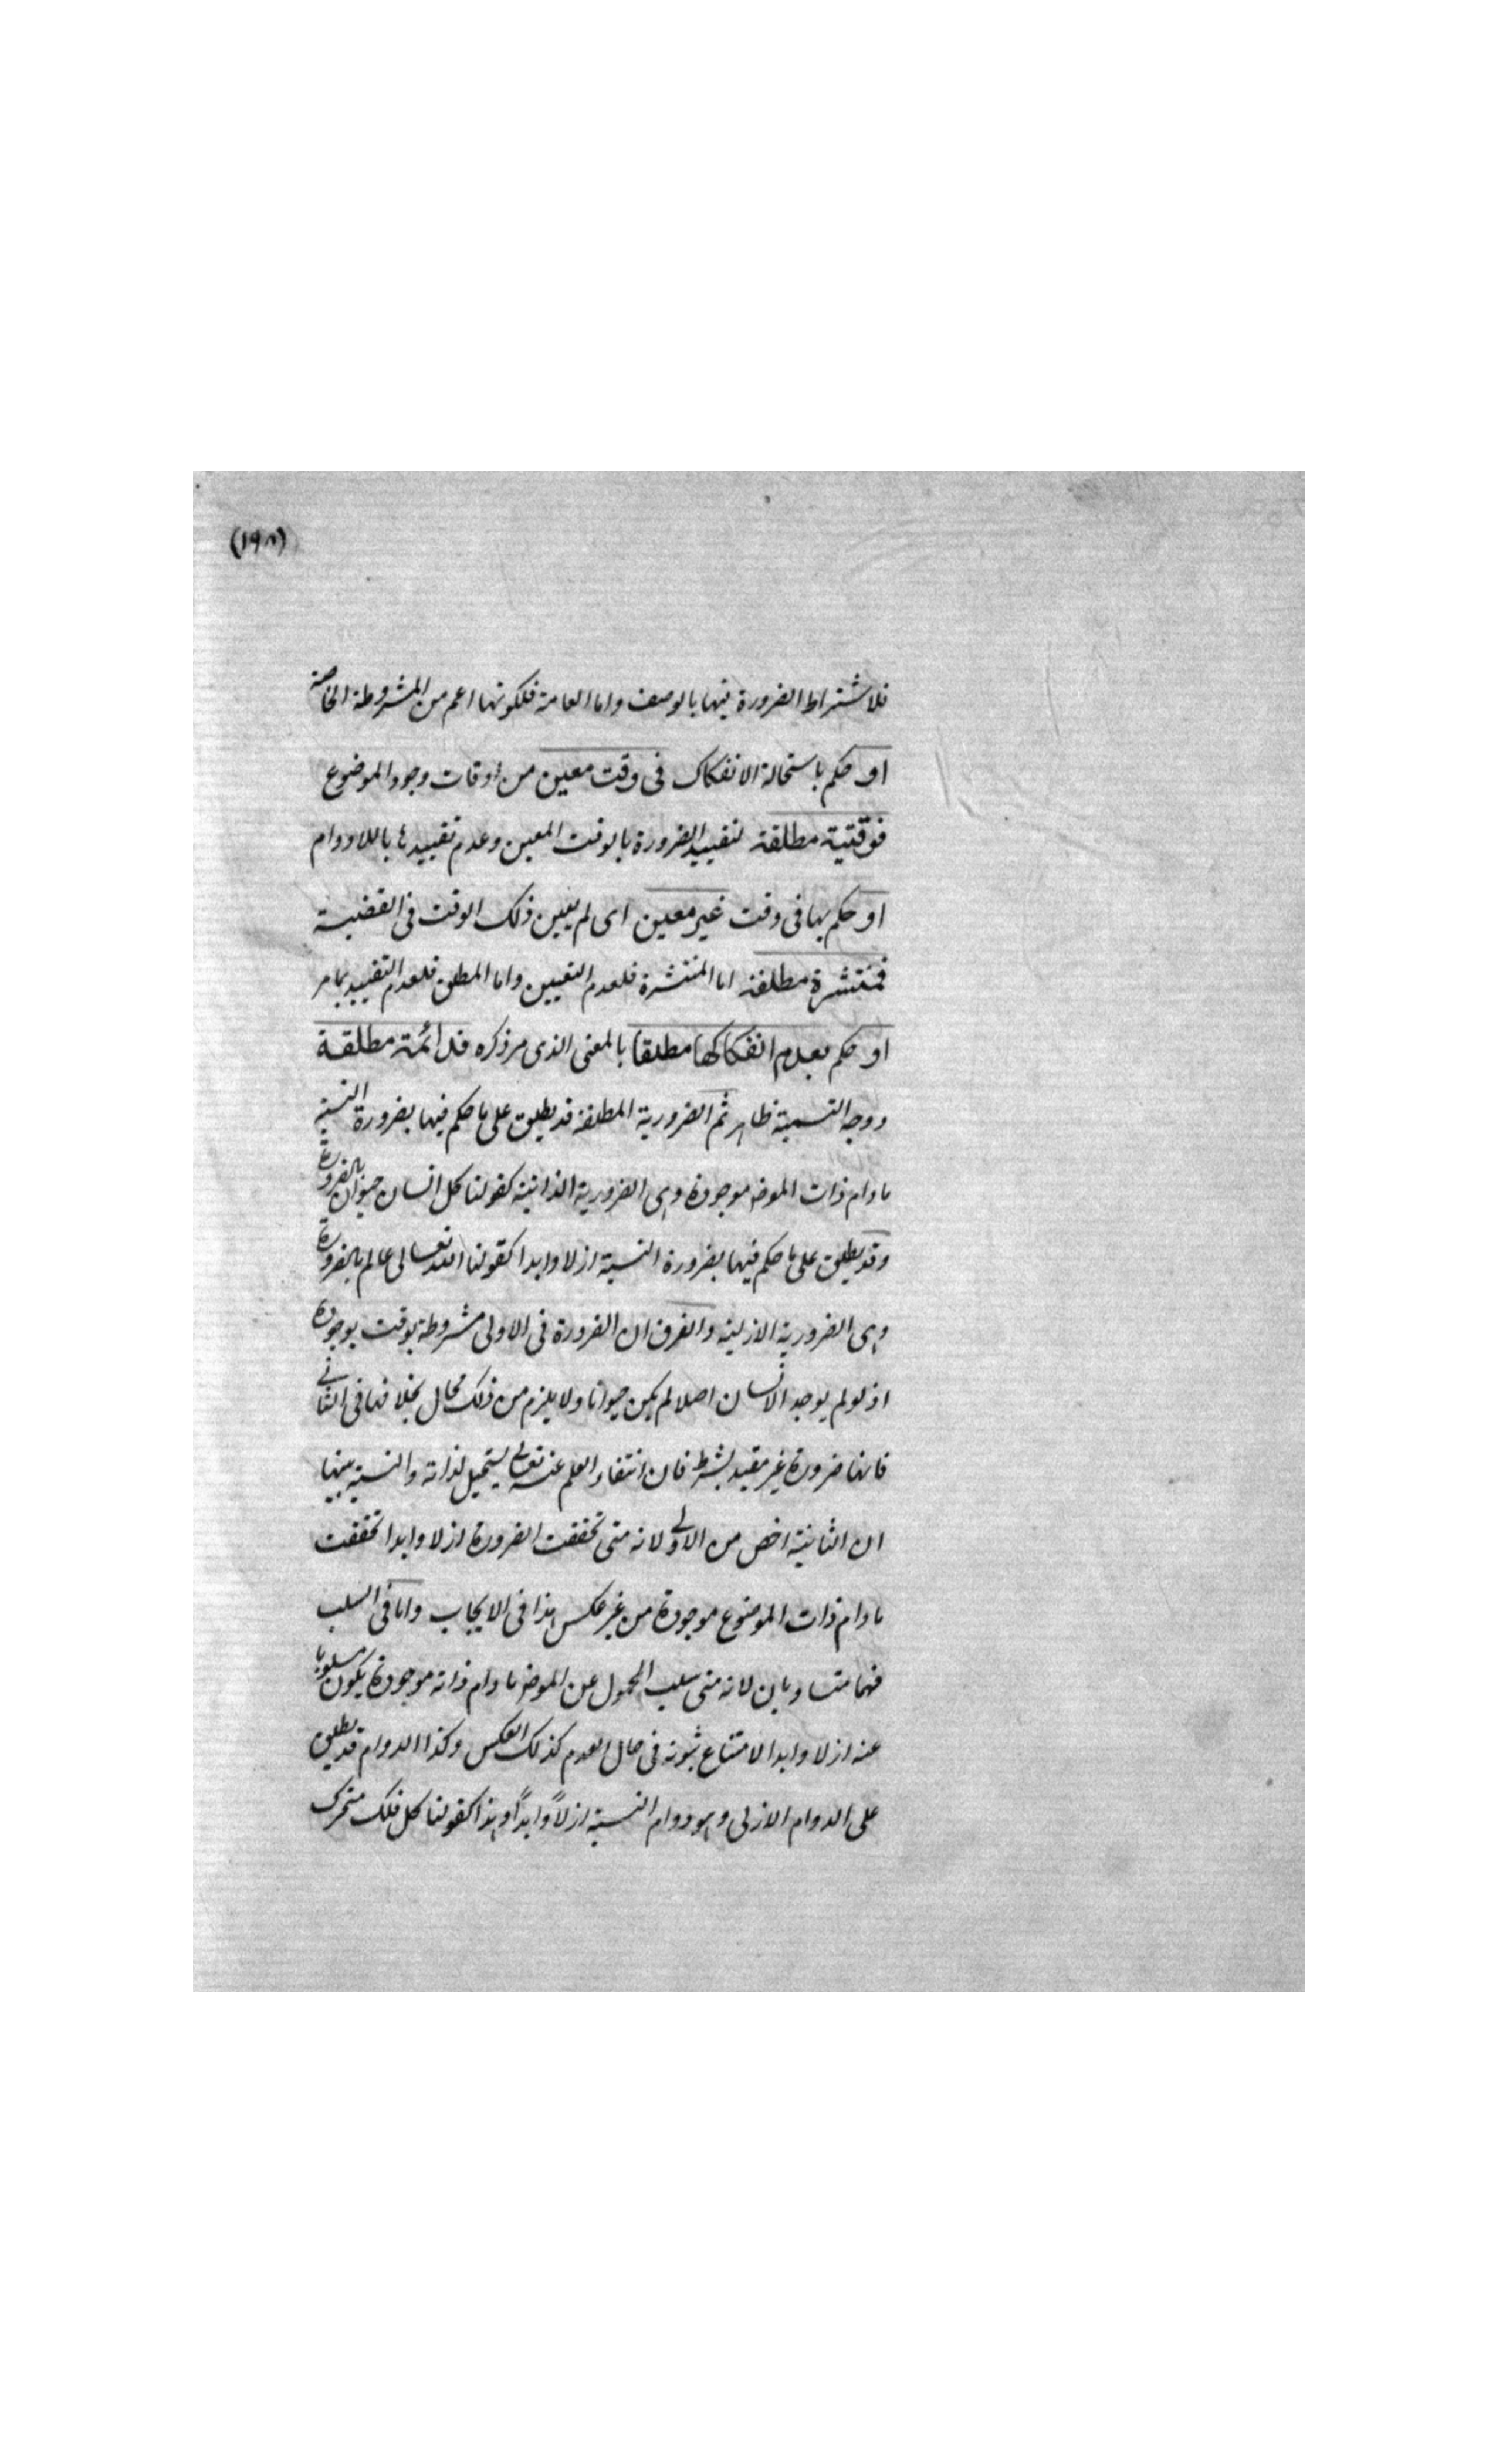 (١٩٨)
فلاشتراط الضرورة فيها بالوصف واما العامة فلكونها اعم من المشروطة الخاصة
او حكم باستحالة الانفكاك فى وقت معين من اوقات وجود الموضوع
فوقتية مطلقة لتقييد الضرورة بالوقت المعين وعدم تقييدها باللادوام
او حكم بها فى وقت غير معين اى لم يعين ذلك الوقت فى القضية
فمنتشرة مطلقة اما المنتشرة فلعدم التعيين واما المطلق فلعدم التقييد بامر
او حكم بعدم انفكاكها مطلقا بالمعنى الذى مر ذكره فدائمة مطلقة
ووجه التسمية ظاهر ثم الضرورية المطلقة قد يطلق على ما حكم فيها بضرورة النسبة
مادام ذات الموضو موجودة وهى الضرورية الذاتية كقولنا كل انسان حيوان بالضرورة
وقد يطلق على ما حكم فيها بضرورة النسبة ازلا وابدا كقولنا الله تعالى عالم بالضرورة
وهى الضرورية الازلية والفرق ان الضرورة فى الاولى مشروطة بوقت بوجوده
اذ لو لم يوجد الانسان اصلا لم يكن حيوانا ولا يلزم من ذلك محال بخلافها فى الثانى
فانها ضرورة غير مقيد بشرط فان انتفاء العلم عنه تعالى يستحيل لذاته والنسبة بينها
ان الثانية اخص من الاولى لانه متى تحققت الضرورة ازلا وابدا تحققت
مادام ذات الموضوع موجودة من غير عكس هذا فى الايجاب واما فى السلب
فهما متساويان لانه متى سلب المحمول عن الموضو مادام ذاته موجودة يكون مسلوبا
عنه ازلا وابدا لامتناع ثبوته فى حال العدم كذلك العكس وكذا الدوام قد يطلق
على الدوام الازلى وهو دوام النسبة ازلاً وابداً وهذا كقولنا كل فلك متحرك